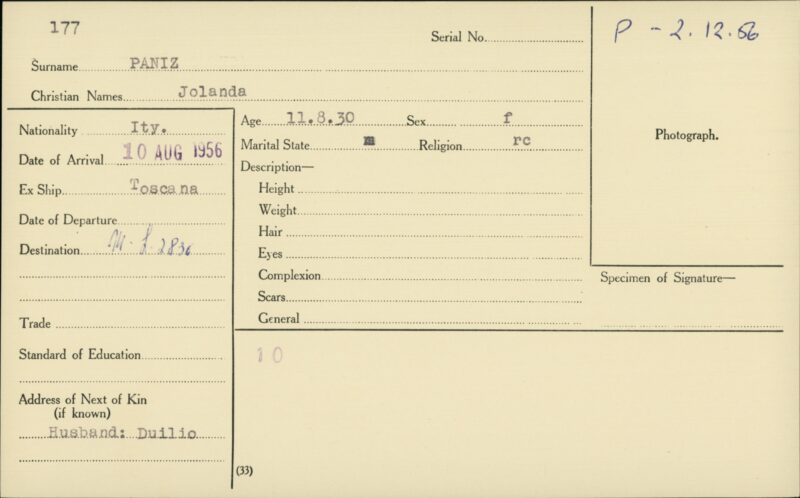 177
Serial No.
P - 2.12.56
Surname PANIZ
Christian Names Jolanda
Nationality Ity.
Date of Arrival 10 AUG 1956
Ex Ship Toscana
Date of Departure
Destination M. L 2830
Trade
Standard of Education
Address of Next of Kin
(if known)
Husband: Duilio
Age 11.8.30 Sex f
Marital State m Religion rc
Description—
Height
Weight
Hair
Eyes
Complexion
Scars
General
10
(33)
Photograph.
Specimen of Signature—